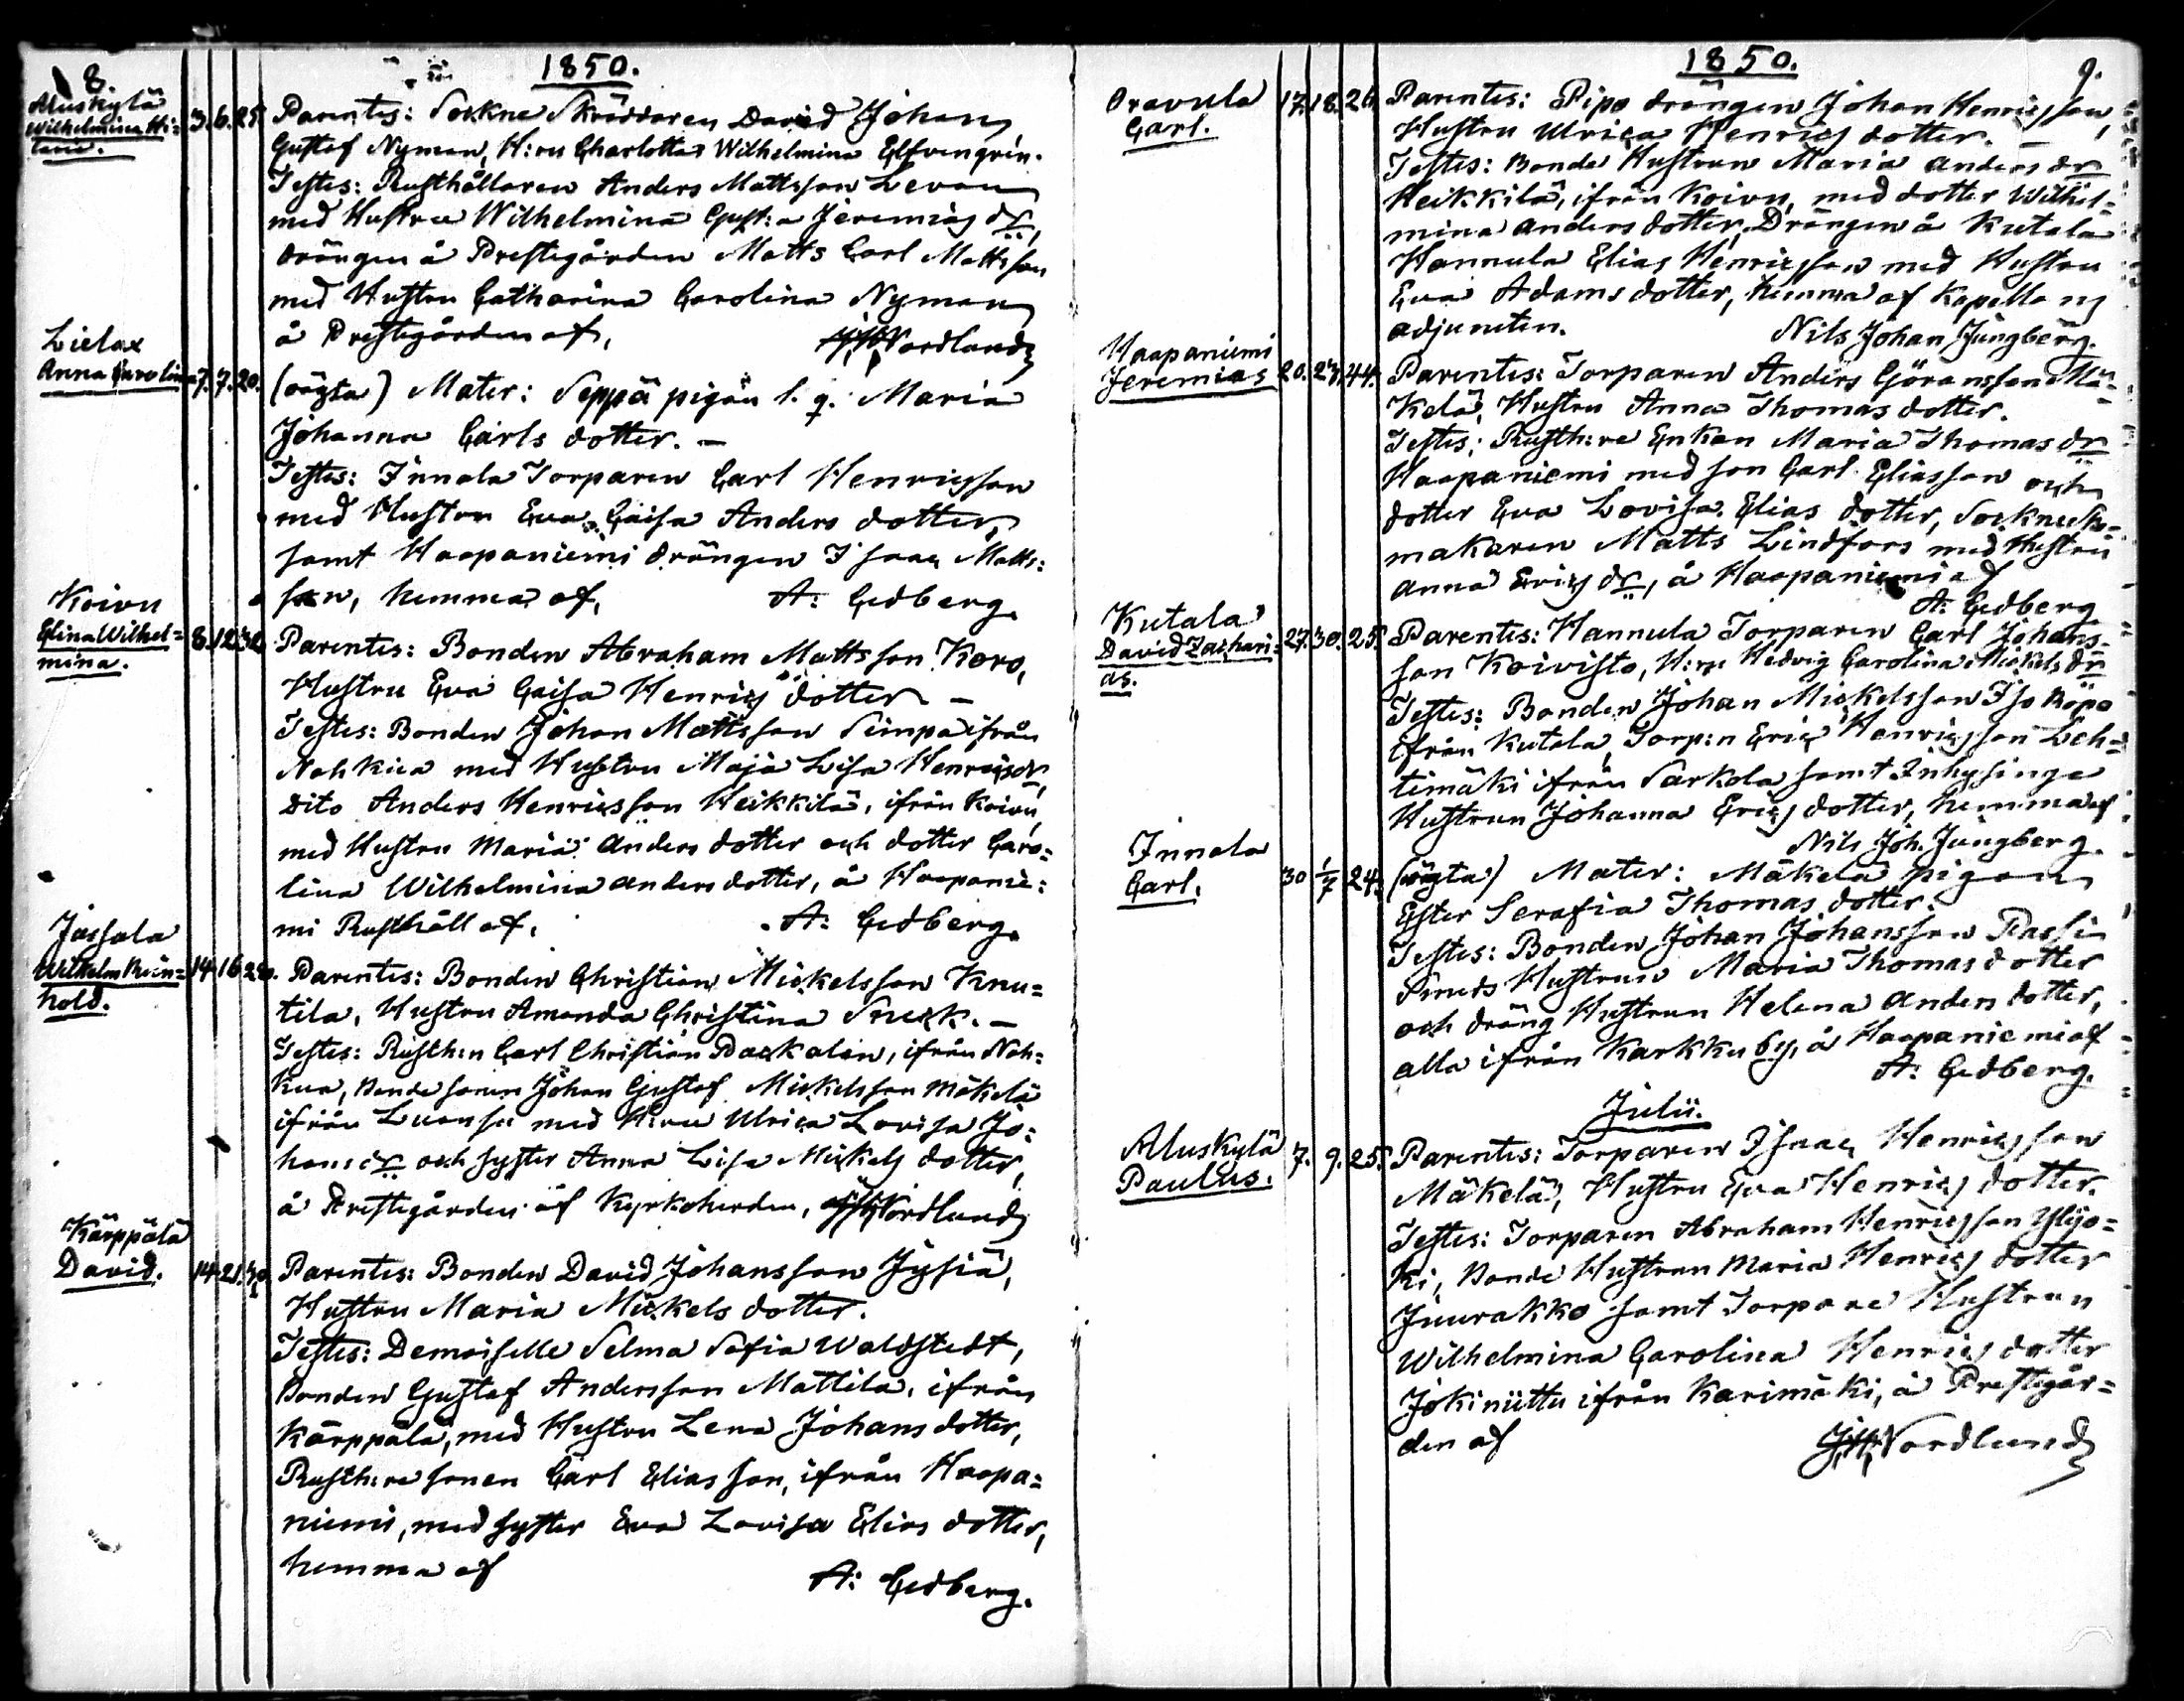 8.
1850.
Aluskylä
Wilhelmina Hi=
laria.
3. 6. 25.
Parentes: Sockne Skräddaren David Johan
Gustaf Nyman, H:ru Charlotta Wilhelmina Elfvengrén.
Testes: Rusthållaren Anders Mattsson Levon
med Hustru Wilhelmina Gust:a Jeremiæ dr,
drängen å Prestegården Matts Carl Mattsson
med Hustru Catharina Carolina Nyman
å Prestegården af, J.H. Nordlund
Lielax
Anna Carolina
7. 7. 20.
(oägta) Mater: Seppä pigan l. q. Maria
Johanna Carls dotter. —
Testes: Innala Torparen Carl Henricsson
med Hustru Eva Caisa Anders dotter,
samt Haapaniemi drängen Isaac Matts:
son, hemma af, A: Cedberg.
Koivu
Elina Wilhel=
mina.
8. 12. 32.
Parentes: Bonden Abraham Mattsson Koro,
Hustru Eva Caisa Henrics dotter —
Testes: Bonden Johan Mattsson Simpa ifrån
Nohkua med Hustru Maja Lisa Henricsdr,
Dito Anders Henricsson Heikkilä, ifrån Koivu,
med Hustru Maria Anders dotter och dotter Caro=
lina Wilhelmina Anders dotter, å Haapanie:
mi Rusthåll af. A: Cedberg.
Jassala
Wilhelm Rein=
hold.
14. 16. 28.
Parentes: Bonden Christian Mickelsson Knu=
tila, Hustru Amanda Christina Sneck. —
Testes: Rusth:n Carl Christian Packalén, ifrån Noh=
kua, Bonde sonen Johan Gustaf Mickelsson Mäkelä
ifrån Luonsu med H:ru Ulrica Lovisa Jo:
hans dr och syster Anna Lisa Mickels dotter,
å Prestegården af Kyrkoherden, J.H. Nordlund
Kärppälä
David.
14. 21. 30.
Parentes: Bonden David Johansson Jysiä,
Hustru Maria Mickels dotter.
Testes: Demoiselle Selma Sofia Waldstedt,
Bonden Gustaf Andersson Mattila, ifrån
Kärppälä, med Hustru Lena Johans dotter,
Rusth:re sonen Carl Eliasson, ifrån Haapa=
niemi, med syster Eva Lovisa Elias dotter,
hemma af
A: Cedberg.
1850.
9.
Oravula
Carl.
17. 18. 26.
Parentes: Pipo drängen Johan Henricsson,
Hustru Ulrica Henrics dotter.
Testes: Bonde Hustrun Maria Anders dr
Heikkilä, ifrån Koivu, med dotter Wilhel=
mina Anders dotter, Drängen å Kutala
Hannula Elias Henricsson med Hustru
Eva Adams dotter, hemma af Kapells
adjuncten. Nils Johan Jungberg.
Haapaniemi
Jeremias
20. 23. 44.
Parentes: Torparen Anders Göransson Mä=
kelä, Hustru Anna Thomas dotter.
Testes: Rusth:re Enkan Maria Thomas dr
Haapaniemi med son Carl Eliasson och
dotter Eva Lovisa Elias dotter, Sockne Sko=
makaren Matts Lindfors med Hustru
Anna Erics dr, å Haapaniemi af
A: Cedberg
Kutala
David Zachari=
as.
27. 30. 25.
Parentes: Hannula Torparen Carl Johans=
son Koivisto, H:ru Hedvig Carolina Mickels dr
Testes: Bonden Johan Mickelsson Iso Röpo
ifrån Kutala, Torp:n Eric Henricsson Leh=
timäki ifrån Sarkola samt Inhysinge
Hustrun Johanna Erics dotter, hemma af
Nils Joh. Jungberg.
Innala
Carl.
30 1/7 24.
(oägta) Mater: Mäkelä pigan
Ester Serafia Thomas dotter.
Testes: Bonden Johan Johansson Rassi
Smeds Hustrun Maria Thomas dotter
och dräng Hustrun Helena Anders dotter,
alla ifrån Karkku by, å Haapaniemi af
A: Cedberg.
Julii.
Aluskylä
Paulus.
7. 9. 25.
Parentes: Torparen Isaac Henricsson
Mäkelä, Hustru Eva Henrics dotter.
Testes: Torparen Abraham Henricsson Ylijo=
ki, Bonde Hustrun Maria Henrics dotter
Juurakko samt Torpare Hustrun
Wilhelmina Carolina Henrics dotter
Jokiniittu ifrån Karimäki, å Prestegår=
den af J.H. Nordlund